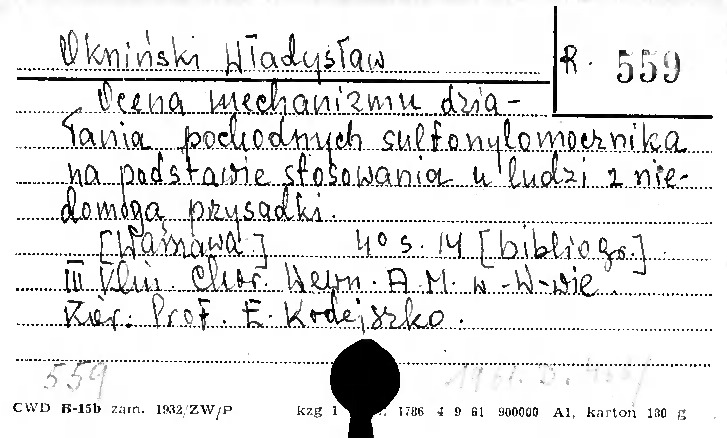 Okniński Władysław
R. 559
Ocena mechanizmu dzia-
łania pochodnych sulfonylomocznika
na podstawie stosowania u ludzi z nie-
domogą przysadki.
[Warszawa] 4o s. 14 [bibliogr.]
III Klin. Chor. Wewn. A.M. w W-wie.
Kier. Prof. E. Kodejszko.
559
CWD B-15b zam. 1932/ZW/P kzg 1 1786 4 9 61 900000 A1, karton 180 g